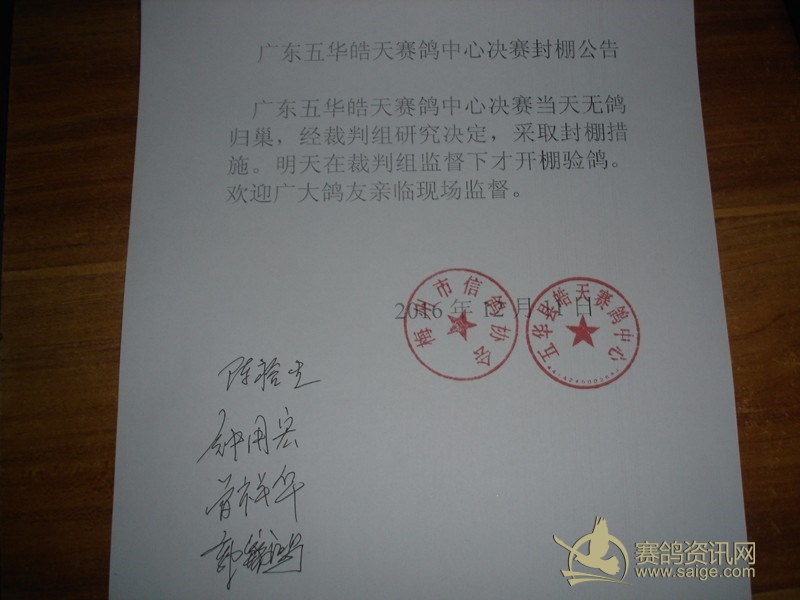 广东五华皓天赛鸽中心决赛封棚公告
广东五华皓天赛鸽中心决赛当天无鸽
归巢，经裁判组研究决定，采取封棚措
施。明天在裁判组监督下才开棚验鸽。
欢迎广大鸽友亲临现场监督。
梅州市信鸽协会
五华县皓天赛鸽中心
2016年12月11日
钟用宏
曾祥华
赛鸽资讯网
www.saige.com